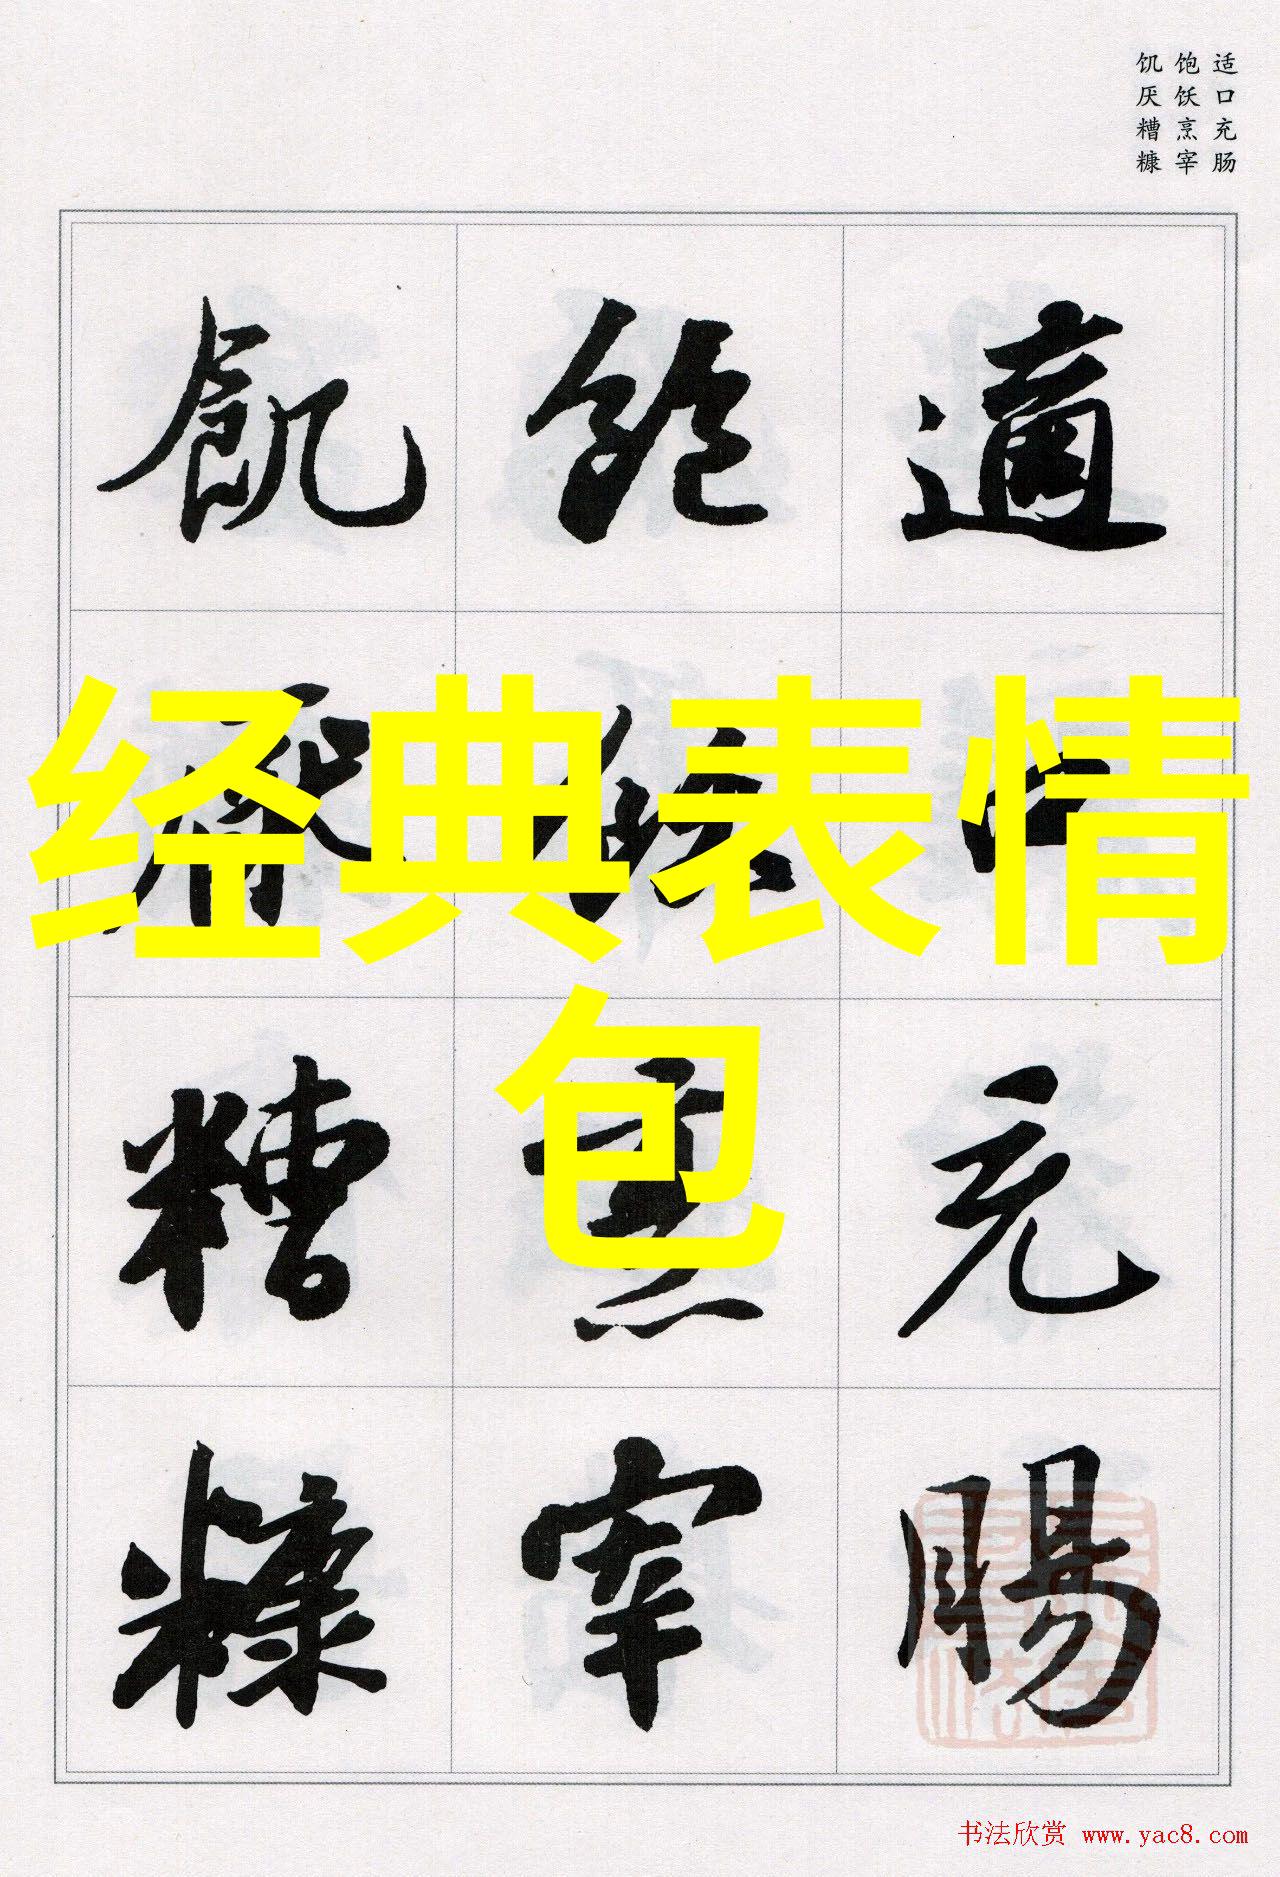 适口充肠
饱饫烹宰
饥厌糟糠
適口充腸
飽飫烹宰
飢厭糟糠
经典表情
包
书法欣赏 www.yac8.com